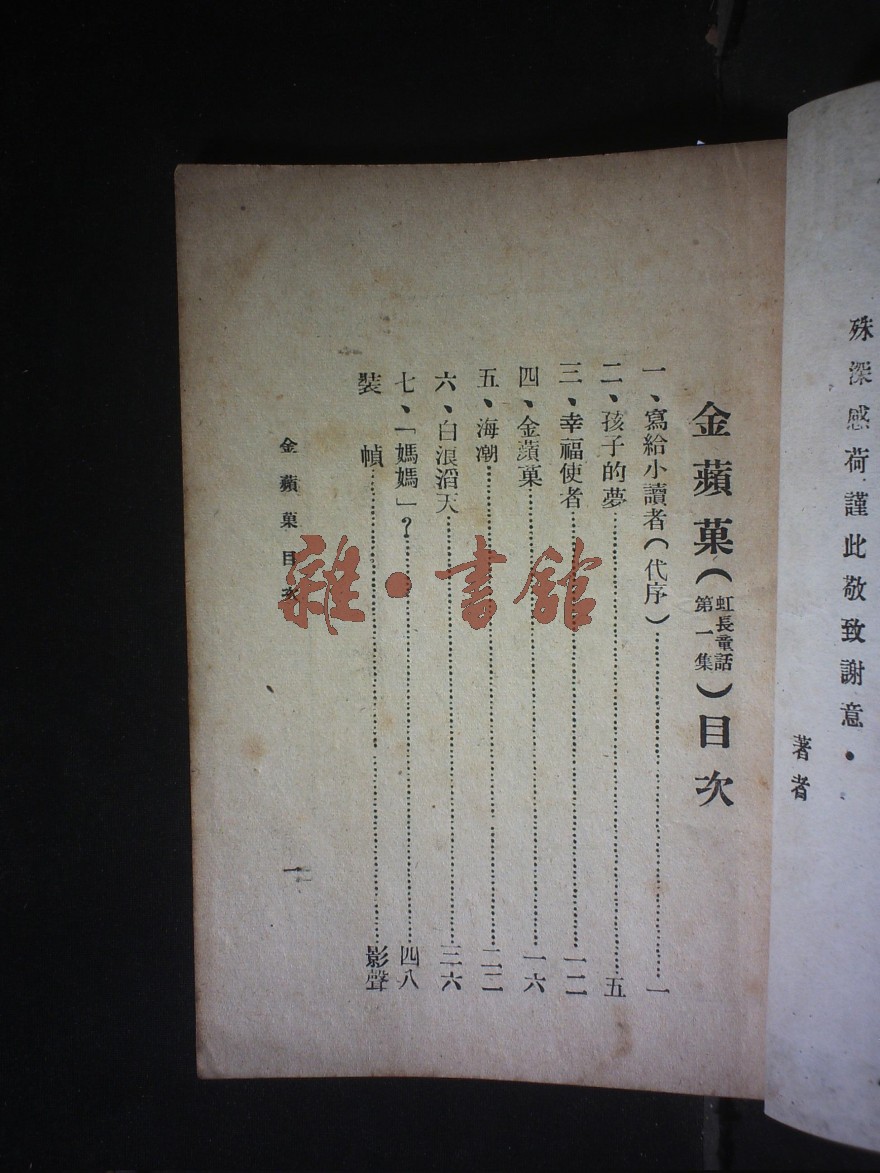 殊深感荷謹此敬致謝意．
著者
金蘋菓（虹長童話第一集）目次
一、寫給小讀者（代序）……一
二、孩子的夢……五
三、幸福使者……一二
四、金蘋菓……一六
五、海潮……二二
六、白浪滔天……三六
七、「媽媽」？……四八
裝幀……影聲
金蘋菓目次
一
雜·書館